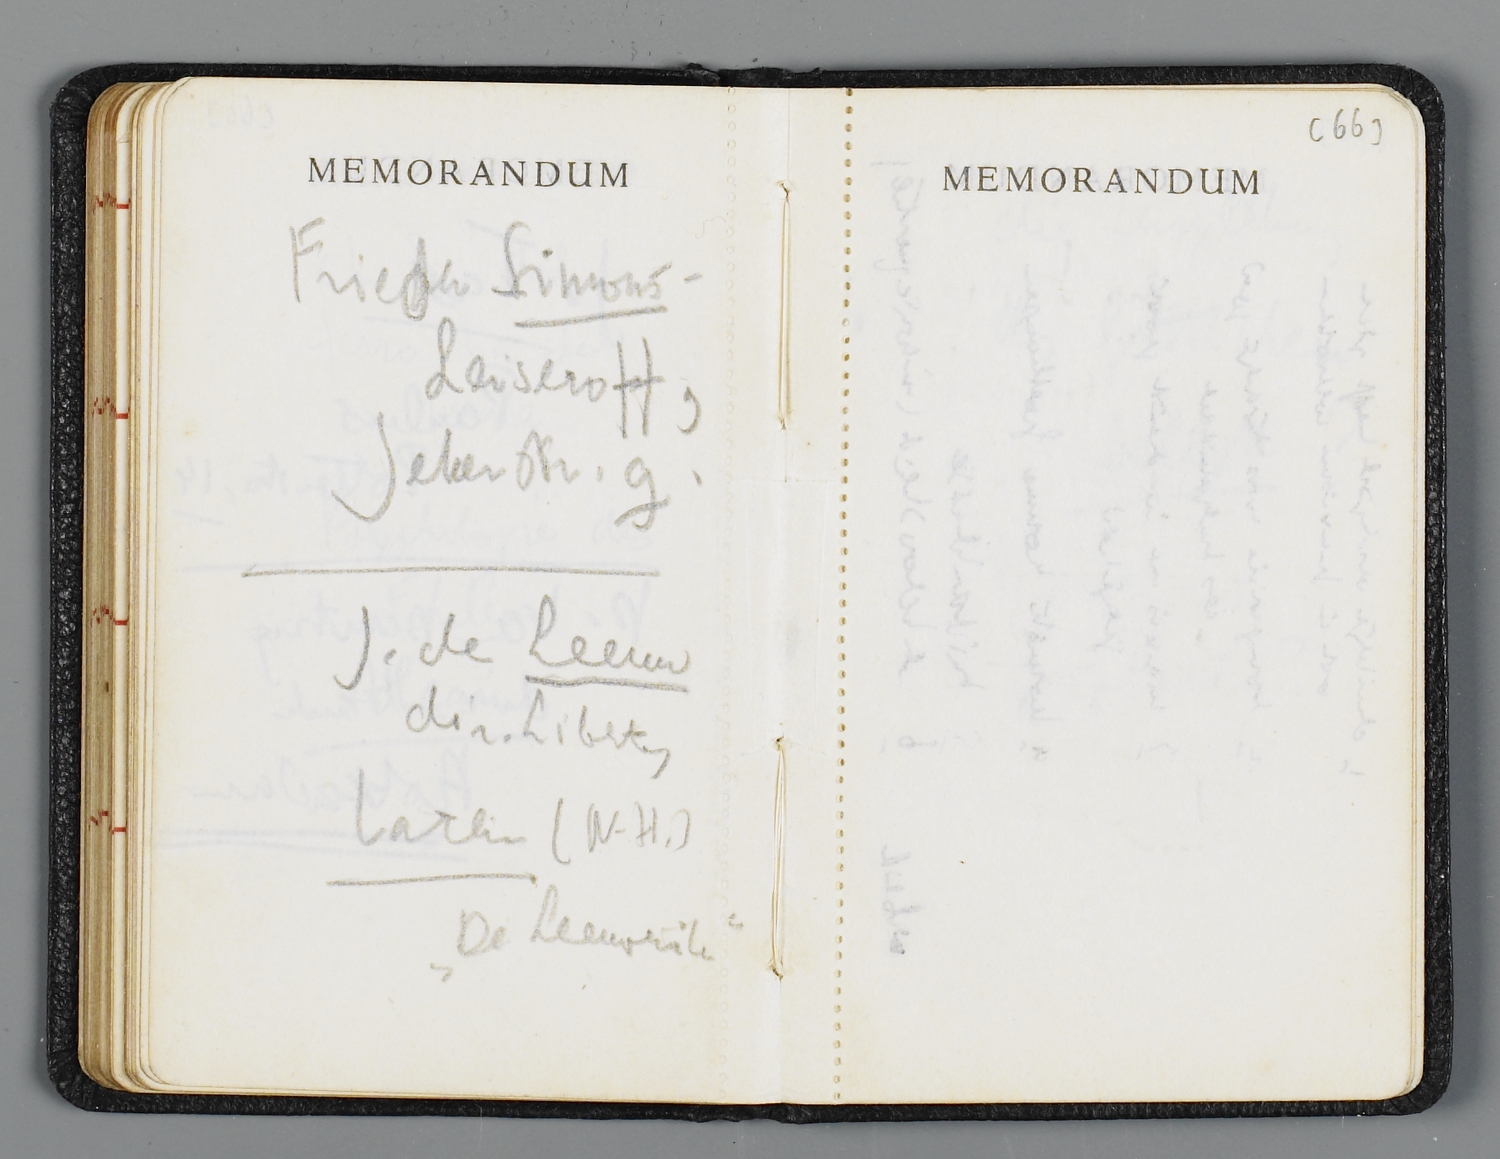 MEMORANDUM
Frieda Simons-
Laiseroff,
Jekerstr. 9.
J. de Leeuw
dir. Liberty,
Laren (N-H.)
„De Leeuwerik"
MEMORANDUM
(66)